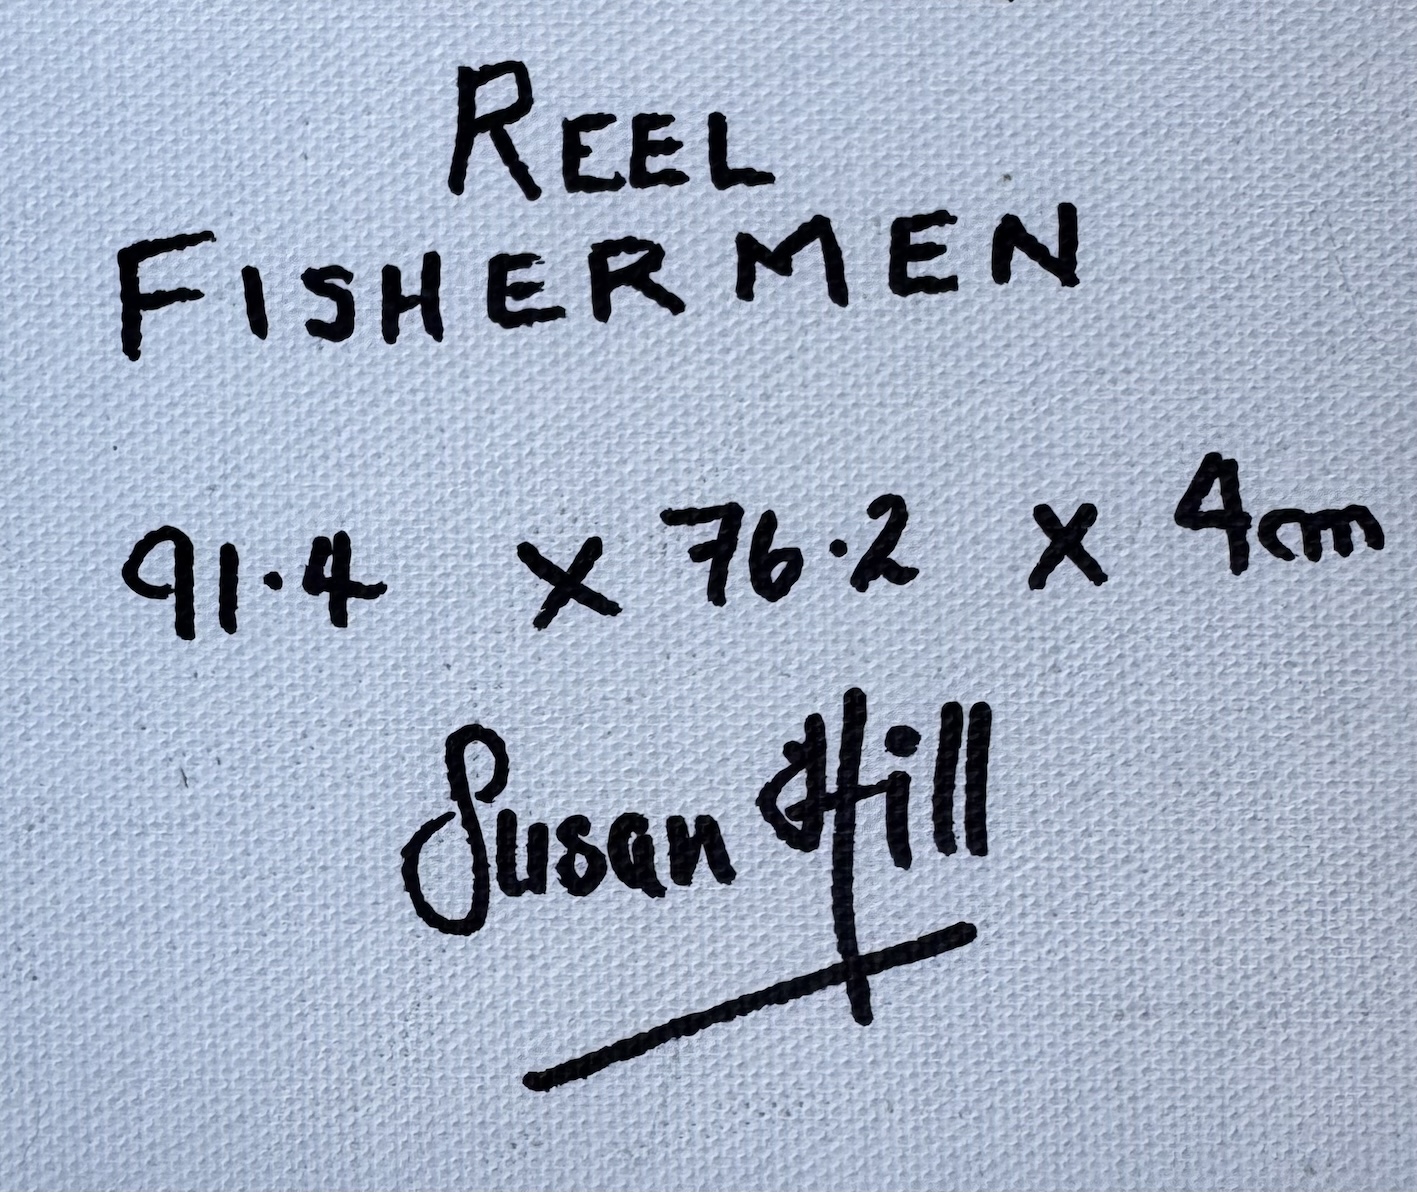 REEL
FISHERMEN
91.4 x 76.2 x 4cm
Susan Hill